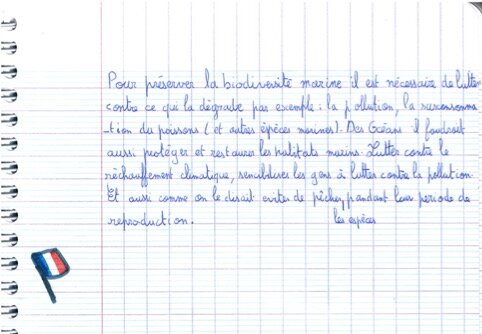 Pour préserver la biodiversité marine il est nécessaire de lutter
contre ce qui la dégrade par exemple : la pollution, la surconsomma
-tion du poissons (et autres éspèces marines). Des Océans il faudrait
aussi protéger et restaurer les habitats marins. Lutter contre le
réchauffement climatique, sensibiliser les gens à lutter contre la pollution.
Et aussi comme on le disait eviter de pêcher, pandant leur periode de
reproduction. les espèces